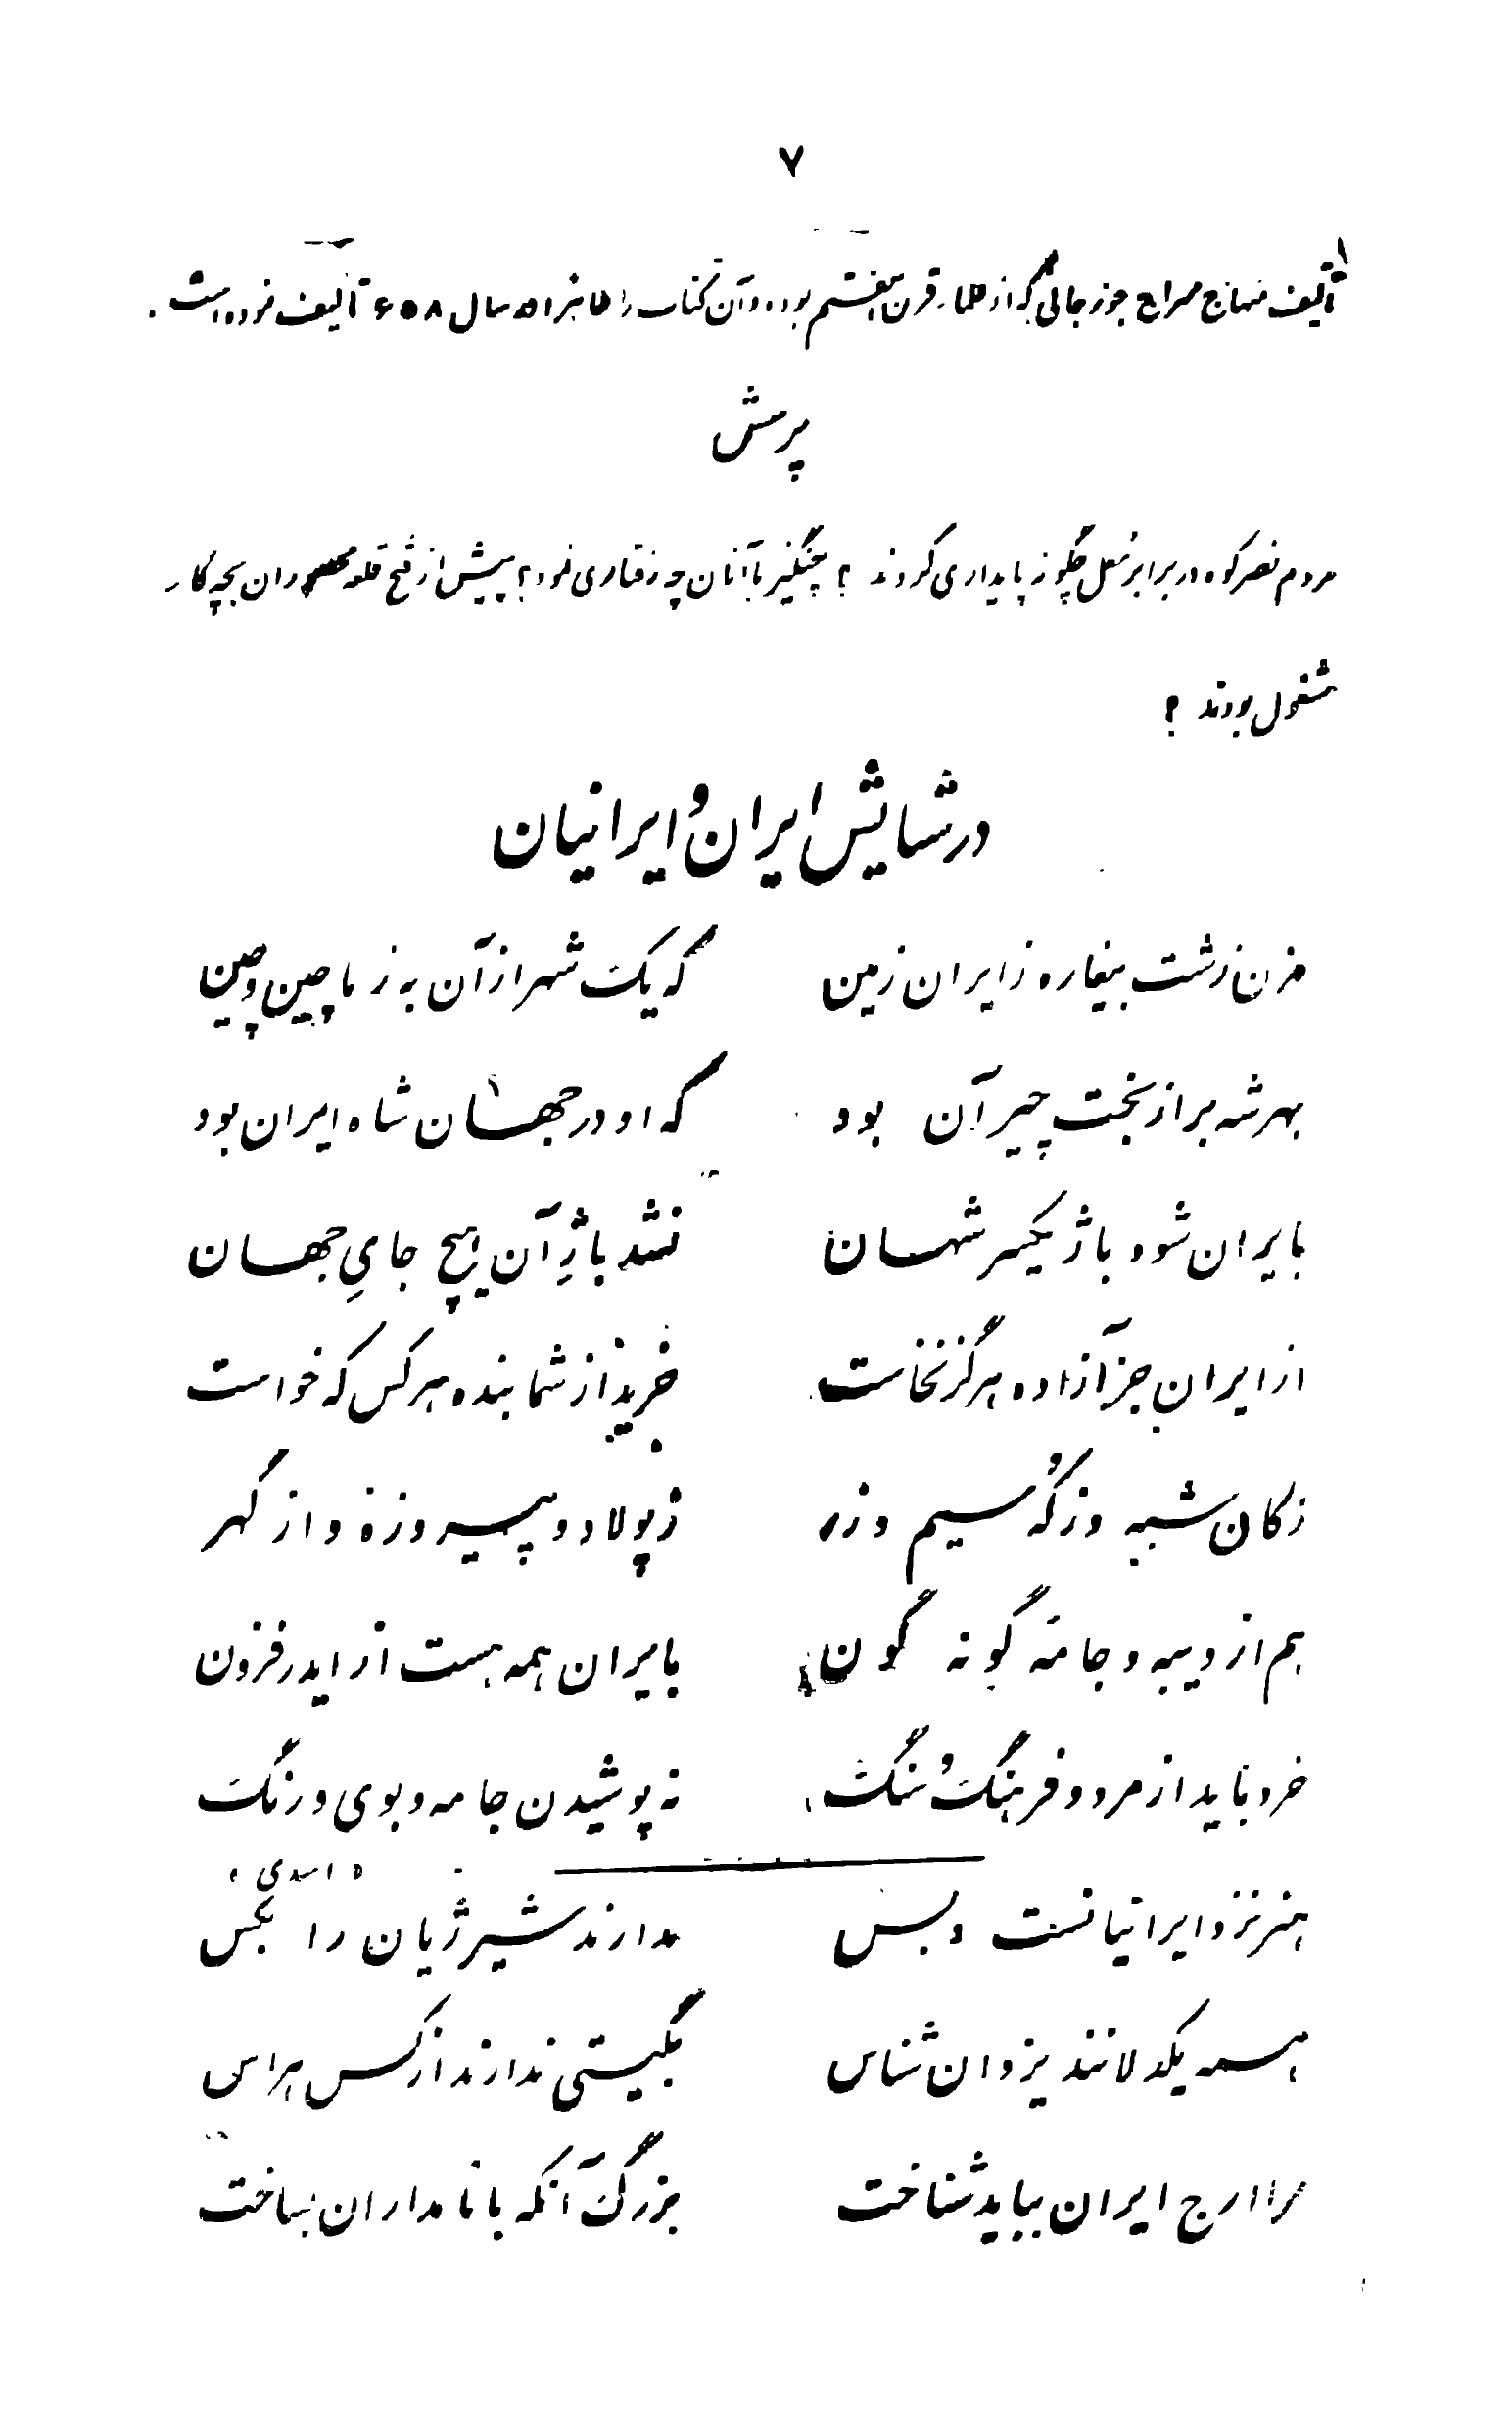 ۷
تألیف منهاج سراج جوزجانی که از علماء قرن هفتم بوده و آن کتاب را ظاهراً در سال ۶۵۸ تألیف نموده است .
پرسش
مردم نصرکوه در برابر مغل چگونه پایداری کردند ؟ چنگیز با آنان چه رفتاری نمود ؟ پیش از فتح قلعه محصوران بچه کار
مشغول بودند ؟
در ستایش ایران و ایرانیان
مزن زشت بیغاره ز ایران زمین که یک شهر از آن به ز ماچین و چین
بهر شه بر از بخت چیر آن بود که او در جهان شاه ایران بود
بایران شود باژ یکسر شهان نشد باژ آن هیچ جای جهان
از ایران جز آزاده هرگز نخاست خرید از شما بنده هر کس که خواست
ز کان شبه وز که سیم و زر ز پولاد و پیروزه و از گهر
هم از دیبه و جامه گونه گون بایران همه هست از ایدر فزون
خرد باید از مرد و فرهنگ و سنگ نه پوشیدن جامه و بوی و رنگ
« اسدی »
هنر نزد ایرانیانست و بس ندارند شیر ژیان را بکس
همه یکدلانند یزدان شناس بگیتی ندارند از کس هراس
مرا ارج ایران بباید شناخت بزرگ آنکه با نامداران بساخت